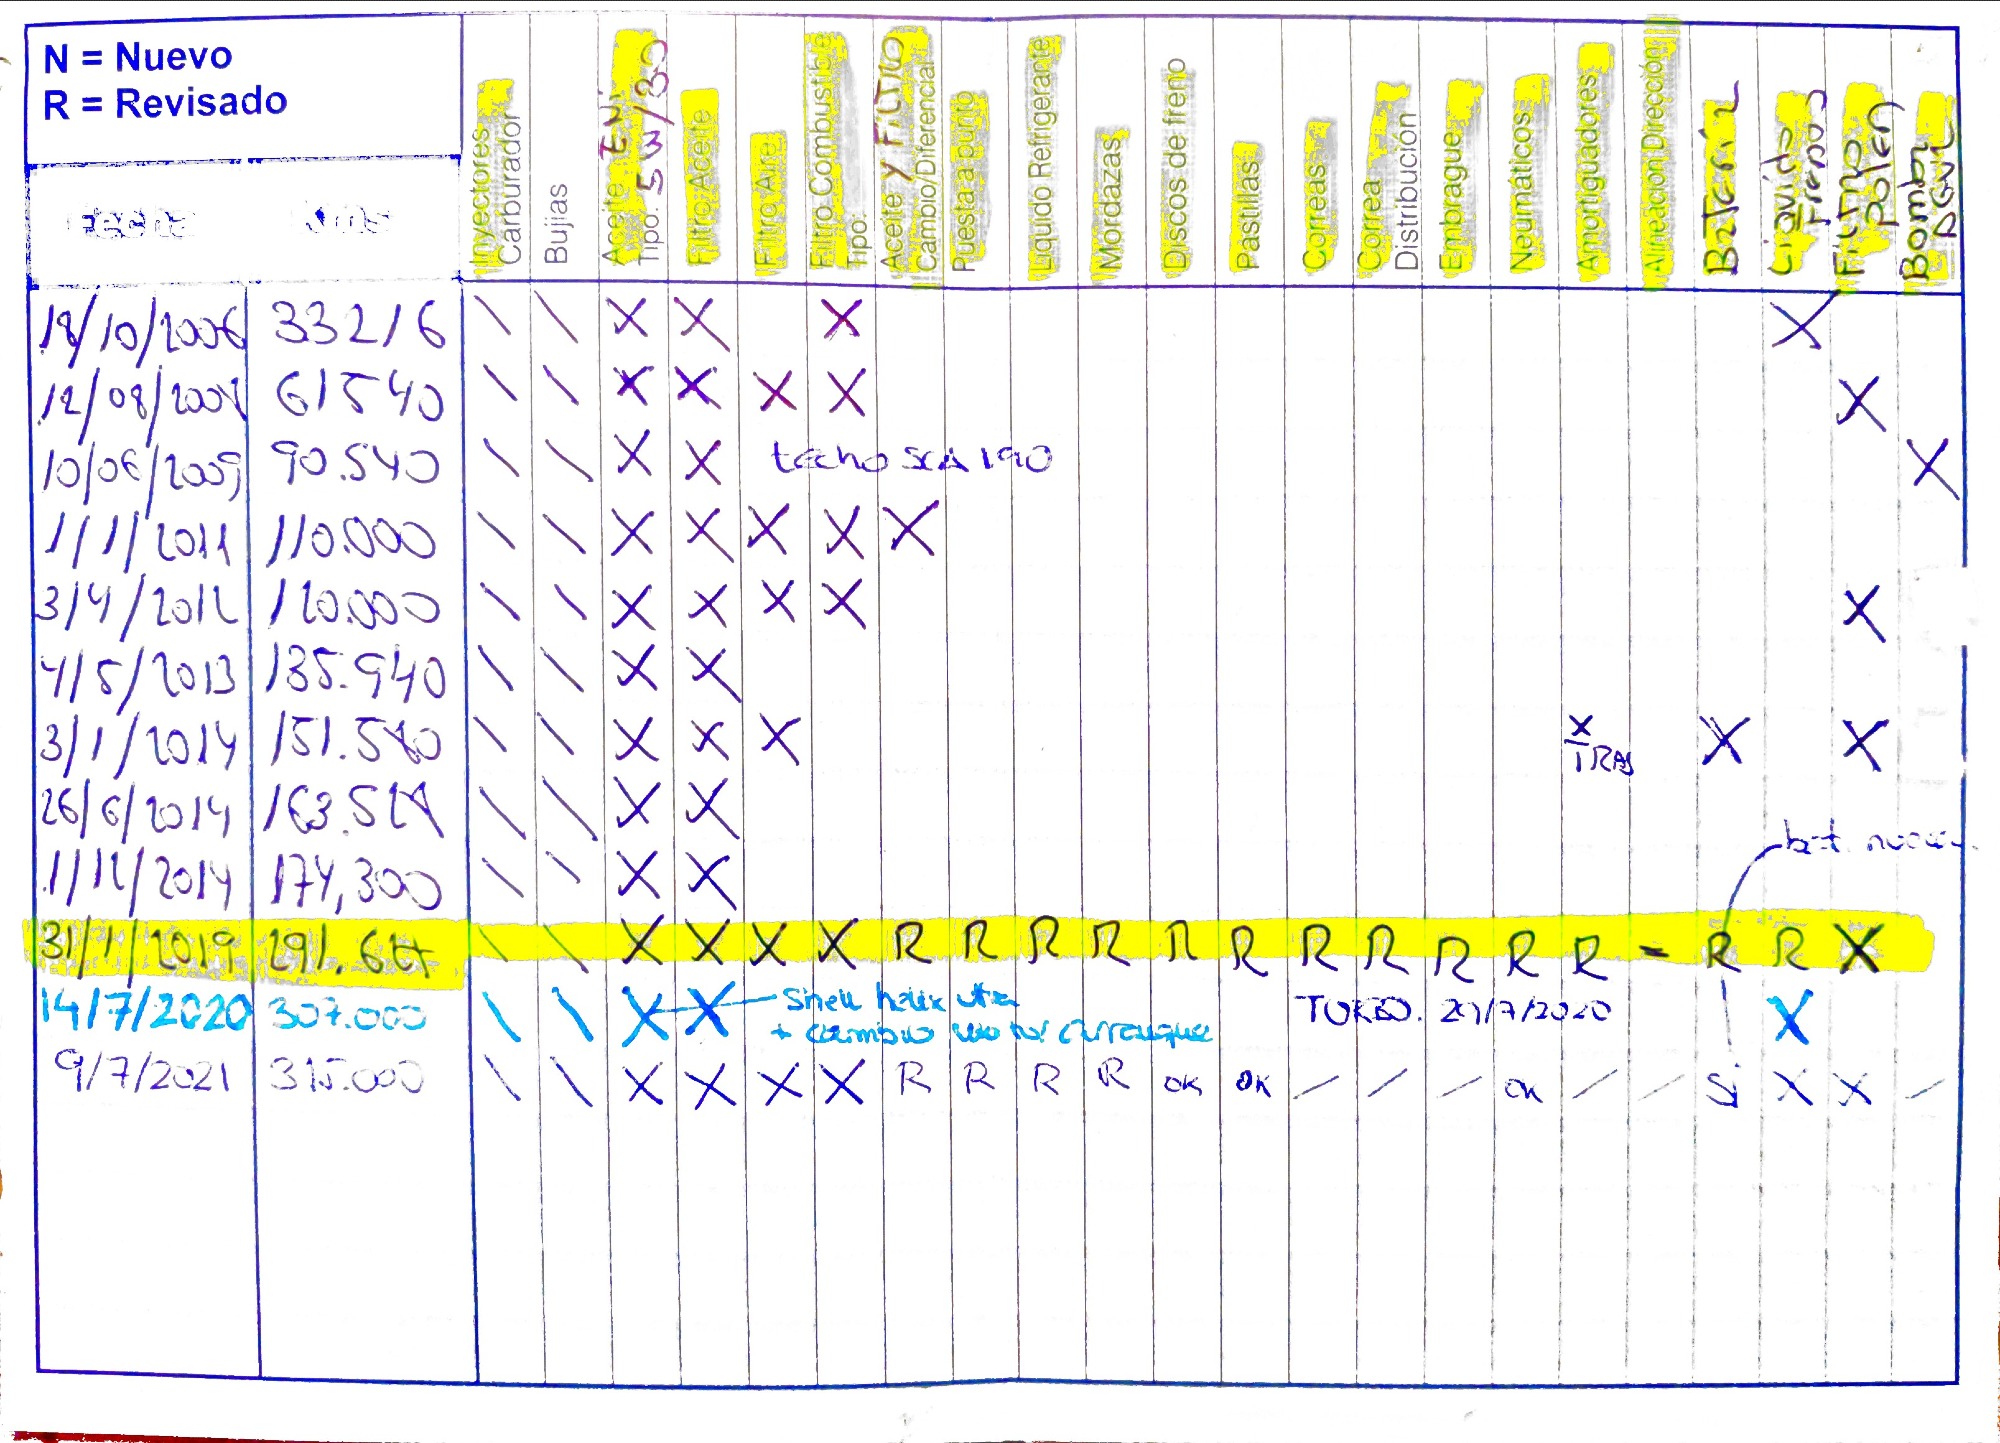 N = Nuevo
R = Revisado
Fecha Kms
Inyectores
Carburador
Bujias
Aceite ENI
Tipo. 5W/30
Filtro Aceite
Filtro Aire
Filtro Combustible
Tipo:
Aceite y FiLTRO
Cambio/Diferencial
Puesta a punto
Liqudo Refrigerante
Mordazas
Discos de freno
Pastillas
Correas
Correa
Distribución
Embrague
Neumáticos
Amortiguadores
Alineación Dirección
Batería
Liquido
Frenos
FiLTRO
polen
Bomba
Agua
18/10/2006 33216 \ \ X X X X
12/08/2008 61540 \ \ X X X X X
10/06/2009 90.540 \ \ X X techo SCA 190 X
1/1/2011 110.000 \ \ X X X X X
3/4/2012 120.000 \ \ X X X X X
4/5/2013 135.940 \ \ X X
3/1/2014 \ \ X X X X TRAS X X
26/6/2014 \ \ X X
bat. nueva
1/12/2014 174,300 \ \ X X
31/1/2019 \ \ X X X X R R R R R R R R R R R - R R X
14/7/2020 307.000 \ \ X X Shell helix ultra TURBO. 29/7/2020 X
+ cambio motor arranque
9/7/2021 315.000 \ \ X X X X R R R R OK OK / / / OK / / Si X X /